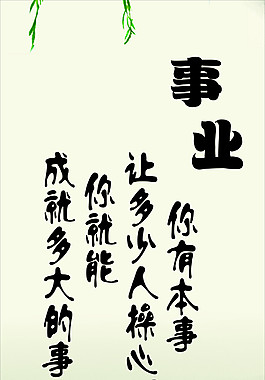 事业
你有本事
让多少人操心
你就能
成就多大的事